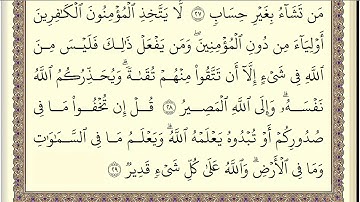 مَن تَشَآءُ بِغَيْرِ حِسَابٍ ٢٧ لَّا يَتَّخِذِ الْمُؤْمِنُونَ الْكَٰفِرِينَ
أَوْلِيَآءَ مِن دُونِ الْمُؤْمِنِينَ ۖ وَمَن يَفْعَلْ ذَٰلِكَ فَلَيْسَ مِنَ
اللَّهِ فِى شَىْءٍ إِلَّآ أَن تَتَّقُوا۟ مِنْهُمْ تُقَىٰةً ۗ وَيُحَذِّرُكُمُ اللَّهُ
نَفْسَهُۥ ۗ وَإِلَى اللَّهِ الْمَصِيرُ ٢٨ قُلْ إِن تُخْفُوا۟ مَا فِى
صُدُورِكُمْ أَوْ تُبْدُوهُ يَعْلَمْهُ اللَّهُ ۗ وَيَعْلَمُ مَا فِى السَّمَٰوَٰتِ
وَمَا فِى الْأَرْضِ ۗ وَاللَّهُ عَلَىٰ كُلِّ شَىْءٍ قَدِيرٌ ٢٩